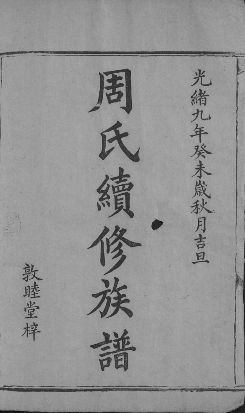 光緒九年癸未歲秋月吉旦
周氏續修族譜
敦睦堂梓